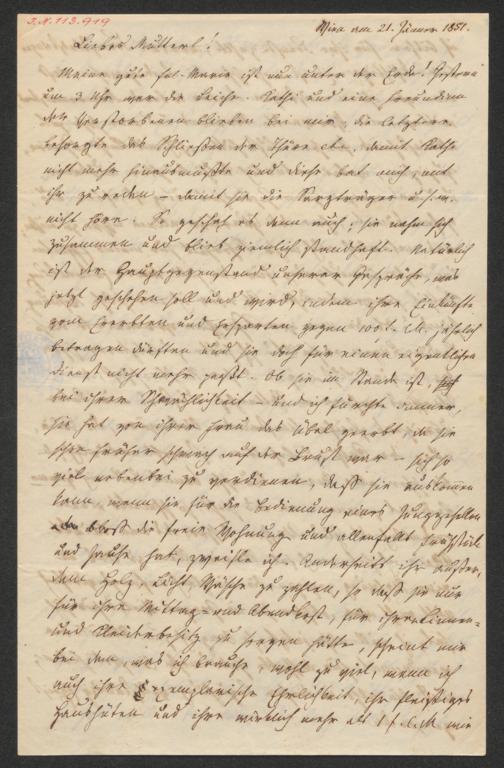 J.N. 113.919
Wien am 21. Jänner 1851.
Liebes Mutterl!
Meine gute Frl. Marie ist nun unter der Erde! Gestern
um 3 Uhr war die Leiche. Kathi und eine Freundinn
der Verstorbenen blieben bei mir, die letztere
besorgte das Schließen der Thüre etc. damit Kathi
nicht mehr hinausmußte und diese bat mich, mit
ihr zu reden – damit sie die Sargträger u.s.w.
nicht höre. So geschah es denn auch; sie nahm sich
zusammen und blieb ziemlich standhaft. Natürlich
ist der Hauptgegenstand unserer Gespräche, was
jetzt geschehen soll und wird, indem ihre Einkünfte
vom Ererbten und Ersparten gegen 100 f. C.M. jährlich
betragen dürften und sie doch für einen eigentlichen
Dienst nicht mehr paßt. Ob sie im Stande ist,
bei ihrer Schwächlichkeit – und ich fürchte immer,
sie hat von ihrer Frau das Übel geerbt, da sie
schon früher schwach auf der Brust war – sich so
viel nebenbei zu verdienen, daß sie auskommen
kann, wenn sie für die Bedienung eines Junggesellen
bloß die freie Wohnung und allenfalls Frühstück
und Jause hat, zweifle ich. Anderseits ihr außer
dem Holz, Licht Wäsche zu zahlen, so daß sie nur
für ihre Mittag- und Abendkost, für ihren Linnen-
und Kleiderbesitz zu sorgen hätte, scheint mir
bei dem, was ich brauche, wohl zu viel, wenn ich
auch ihre exemplarische Ehrlichkeit, ihr fleißiges
Haushüten und ihre wirklich mehr als 1 f. C.M. wie